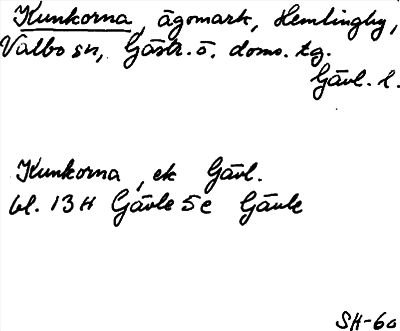 Kunkorna, ägomark, Hemlingby,
Valbo sn, Gästr. ö. doms. tg.
Gävl. l.
Kunkorna, ek Gävl.
bl. 13 H Gävle 5 c Gävle
SH-60